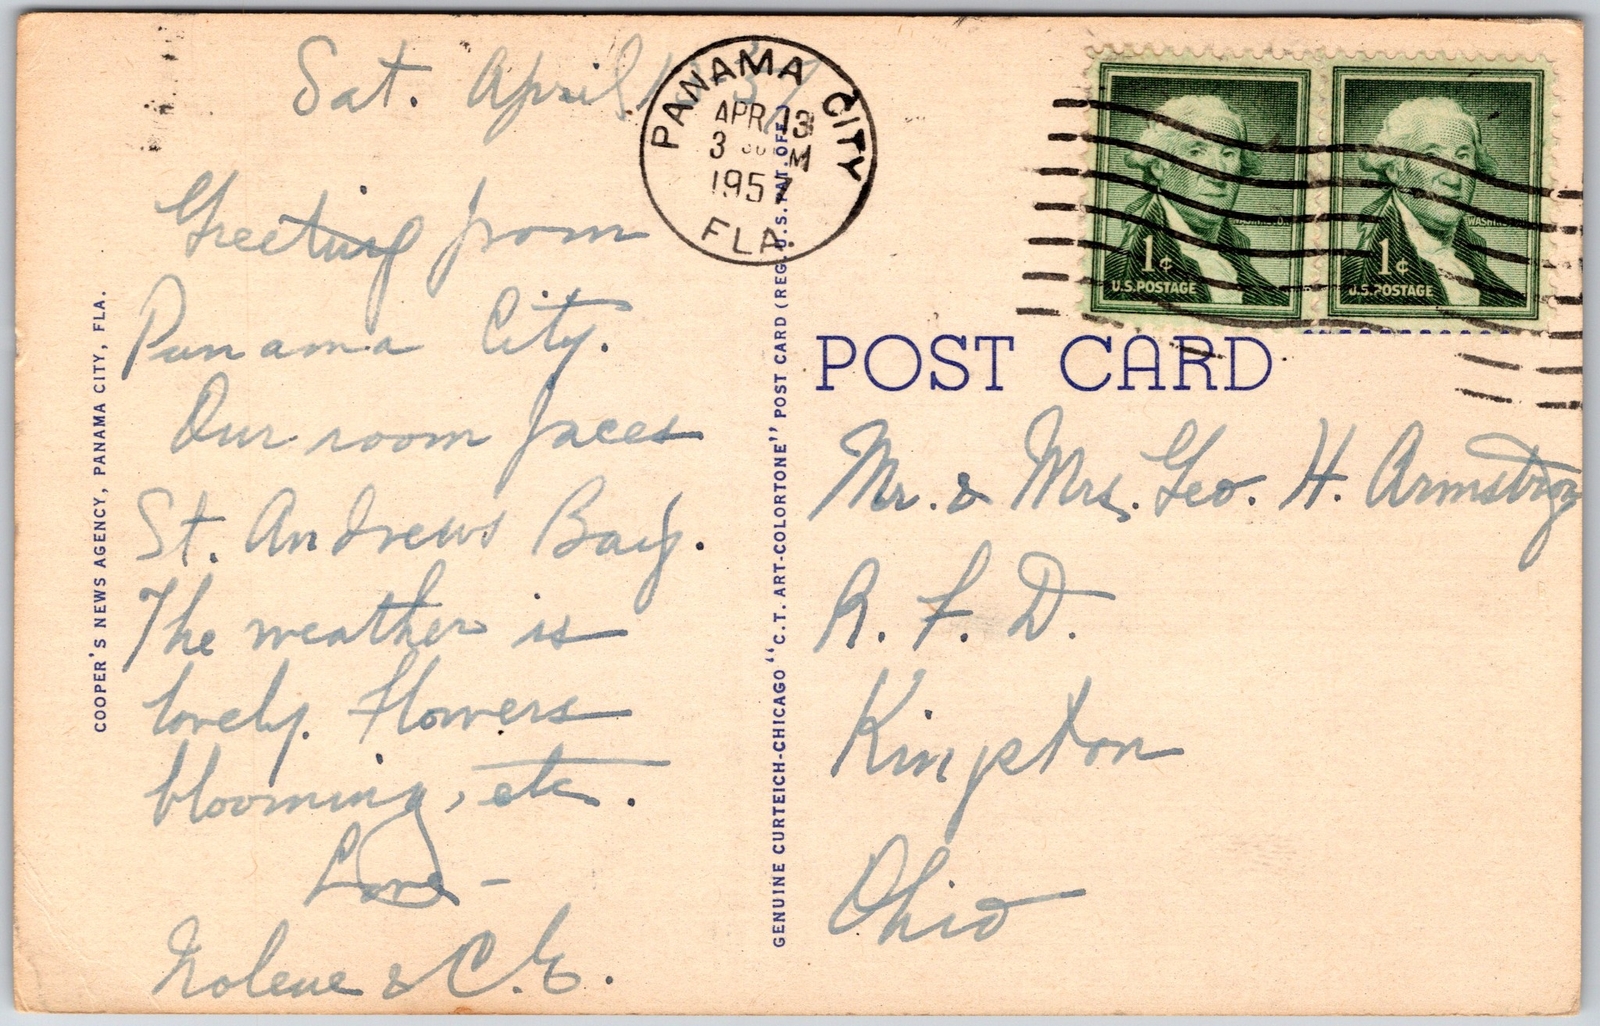 Sat. April
Greeting from
Panama City.
Our room faces
St. Andrews Bay.
The weather is
lovely. Flowers
blooming, etc.
Love -
Nolene & C. E.
COOPER'S NEWS AGENCY, PANAMA CITY, FLA.
GENUINE CURTEICH-CHICAGO "C.T. ART-COLORTONE" POST CARD (REG. U.S. PAT. OFF.
PANAMA CITY
APR 13
3 30 M
1957
FLA.
WASHINGTON
1¢
U.S. POSTAGE
WASHINGTON
1¢
U.S. POSTAGE
POST CARD
Mr. & Mrs. Geo. H. Armstrong
R. F. D.
Kingston
Ohio